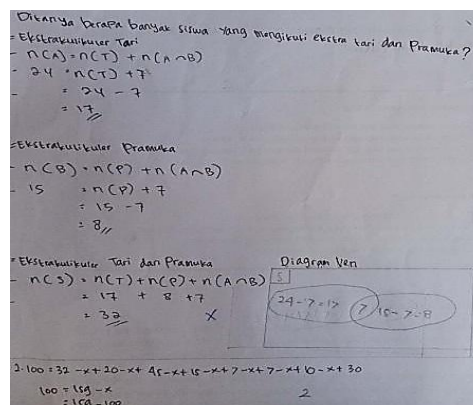 Ditanya berapa banyak siswa yang mengikuti ekstra tari dan Pramuka?
= Ekstrakulikuler Tari
- n(A) = n(T) + n(A∩B)
- 24 = n(T) + 7
- = 24 - 7
= 17
= Ekstrakulikuler Pramuka
- n(B) = n(P) + n(A∩B)
- 15 = n(P) + 7
= 15 - 7
= 8
= Ekstrakulikuler Tari dan Pramuka
- n(S) = n(T) + n(P) + n(A∩B)
- = 17 + 8 + 7
= 32 X
Diagram Ven
S
24-7=17
7
15-7=8
2. 100 = 32 -x + 20 -x + 45 -x + 15 -x + 7 -x + 7 -x + 10 -x + 30
100 = 159 - x
= 159 - 100
2